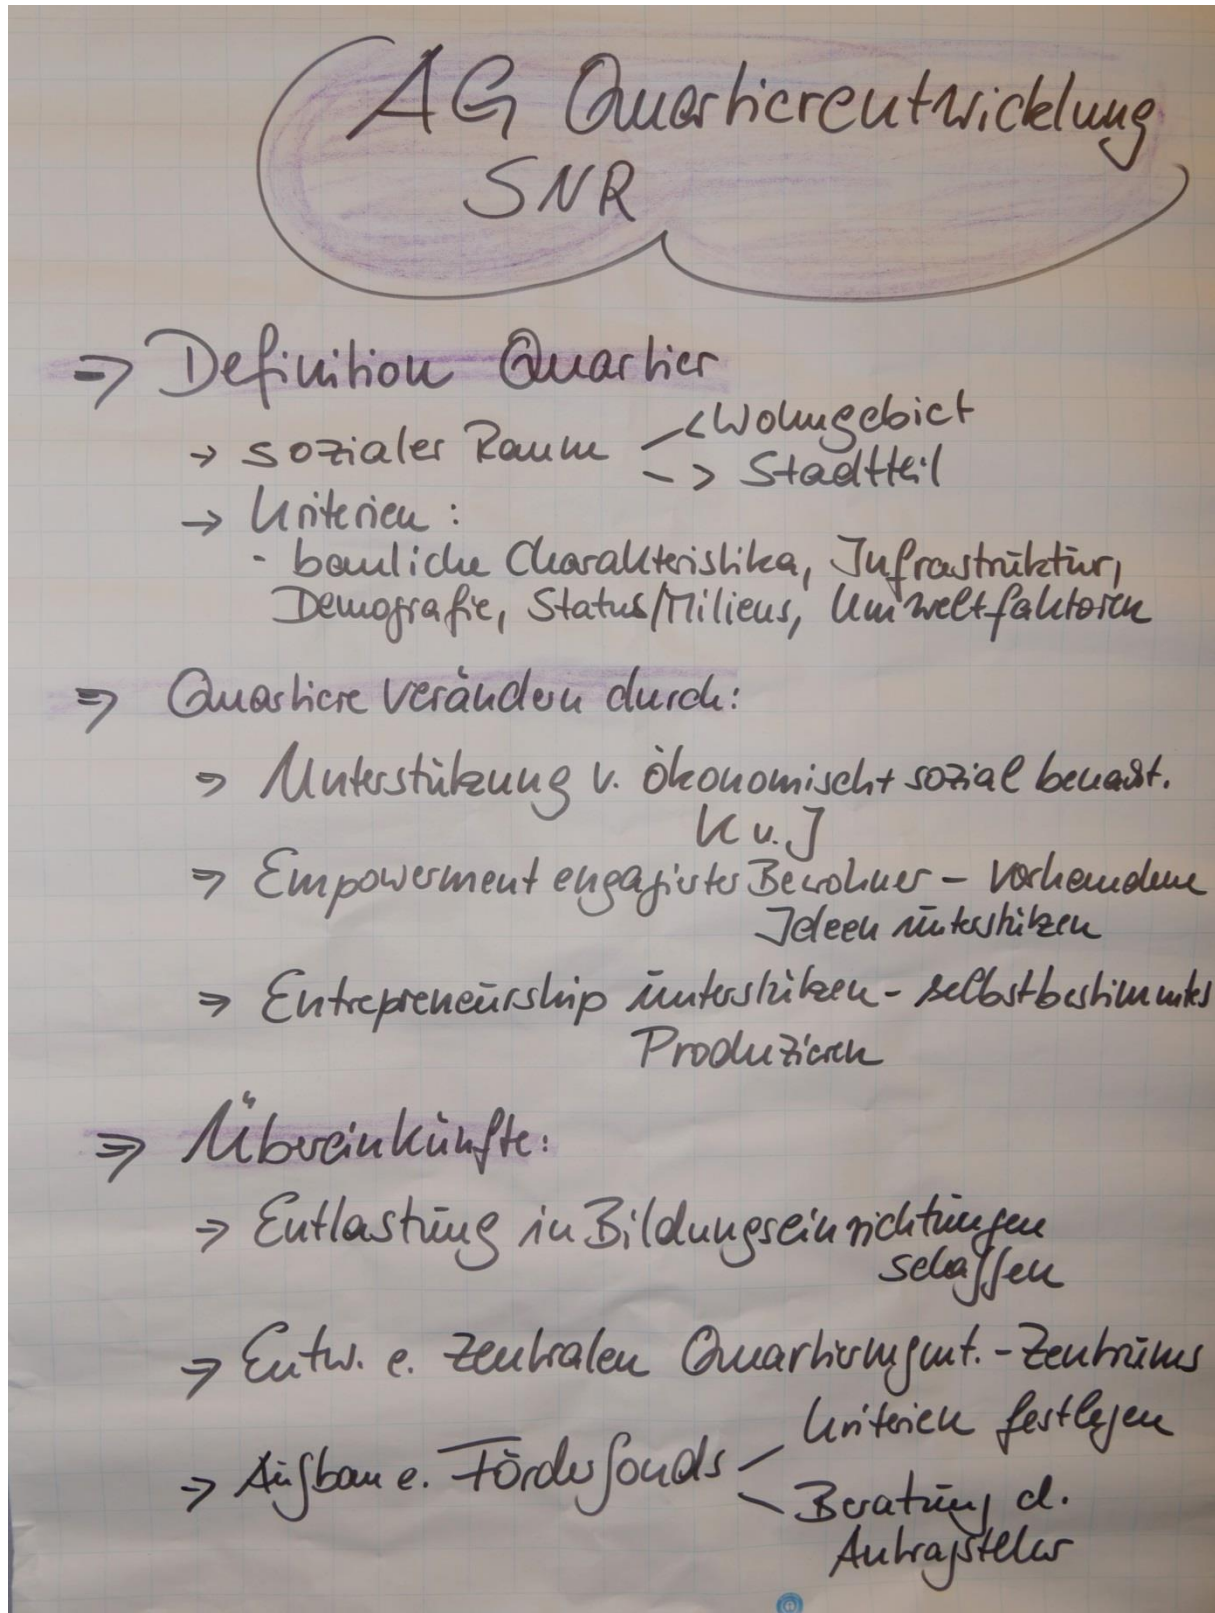 AG Quartierentwicklung
SNR
=> Definition Quartier
-> sozialer Raum -< Wohngebiet
--> Stadtteil
-> Kriterien:
- bauliche Charakteristika, Infrastruktur,
Demografie, Status/Milieus, Umweltfaktoren
=> Quartiere verändern durch:
=> Unterstützung v. ökonomisch + sozial benacht.
K u. J
=> Empowerment engagierter Bewohner - vorhandene
Ideen unterstützen
=> Entrepreneurship unterstützen - selbstbestimmtes
Produzieren
=> Übereinkünfte:
=> Entlastung in Bildungseinrichtungen
schaffen
=> Entw. e. zentralen Quartiermgmt. - Zentrums
Kriterien festlegen
=> Aufbau e. Förderfonds
Beratung d.
Antragsteller